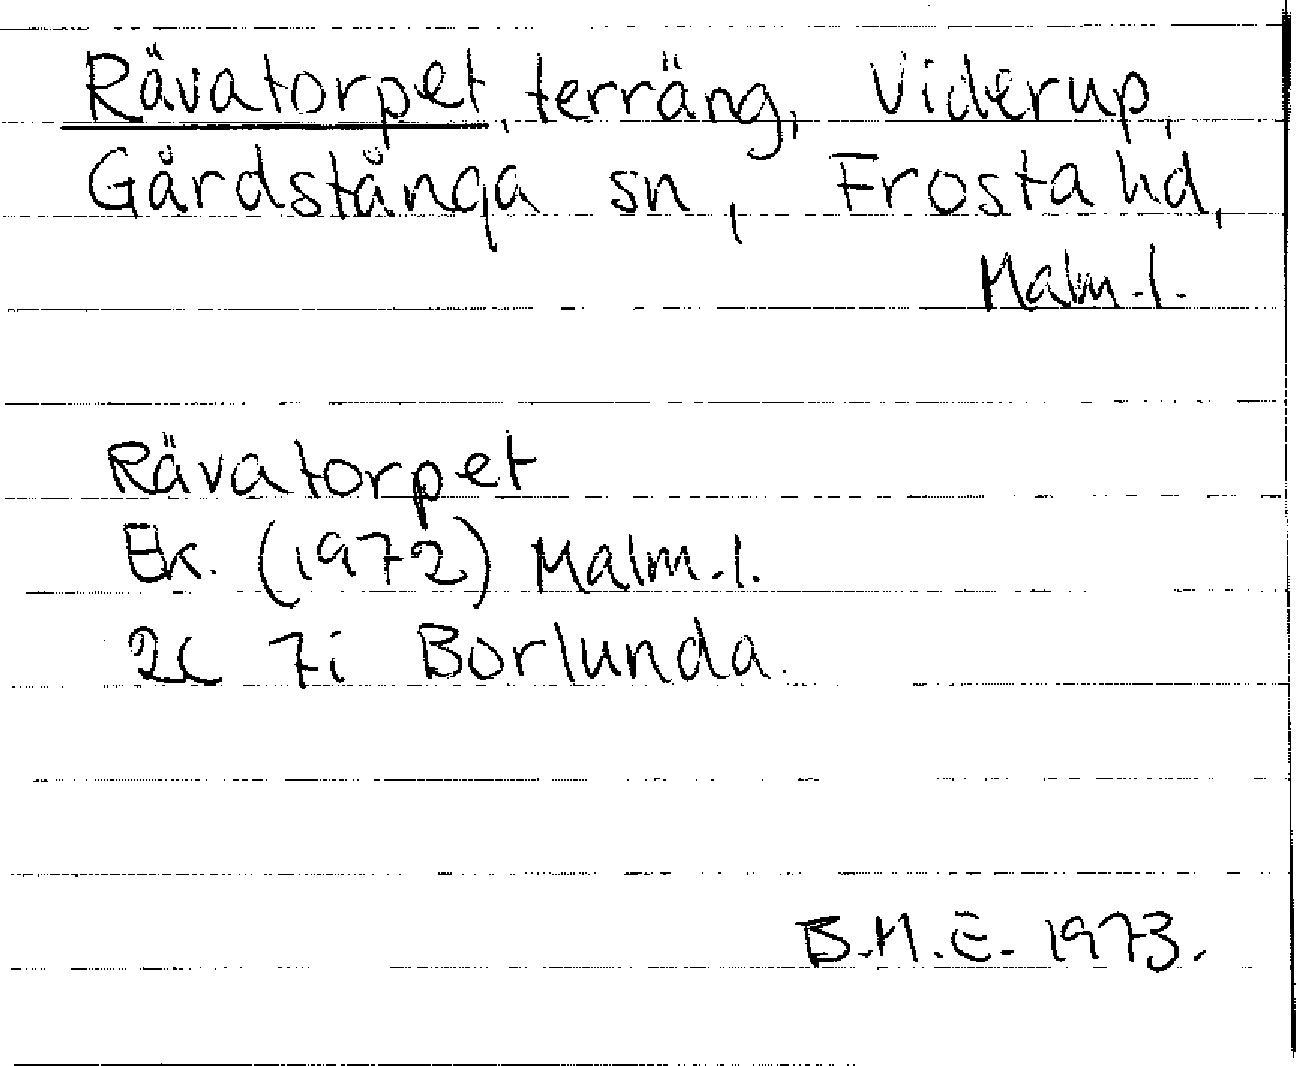 Rävatorpet, terräng, Viderup,
Gårdstånga sn, Frosta hd,
Malm.l.
Rävatorpet
Ek. (1972) Malm.l.
2C 7i Borlunda.
B.M.E. 1973.